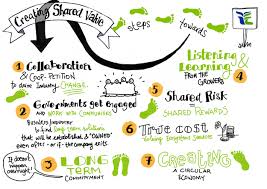 Creating Shared Value
steps
towards
1 Collaboration
& CO-OPETITION
to drive industry CHANGE.
2 Governments get engaged
AND WORK WITH COMPANIES
to find long-term solutions
that will be established & "OWNED"
even after - or if - the company exits
It doesn't
happen
overnight!
3 LONG
TERM
COMMITMENT
Listening
Learning &
FROM THE
GROWERS
4
5 Shared Risk
= SHARED REWARDS
6 True cost
7 CREATING
A CIRCULAR
ECONOMY